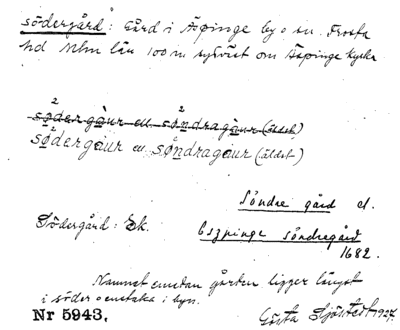 södergård: Gård i Äspinge by o sn. Frosta
hd Mlm län 100 m sydväst om Äspinge kyrka
södergåur ell. söndragåur (äldst)
södergåur ell söndragåur (äldst)
Söndre gård el.
Södergård: Ek.
Eszpinge söndregård
1682.
Namnet emedan gården ligger längst
i söder o enstaka i byn.
Nr 5943. Gösta Sjöstedt 1927.